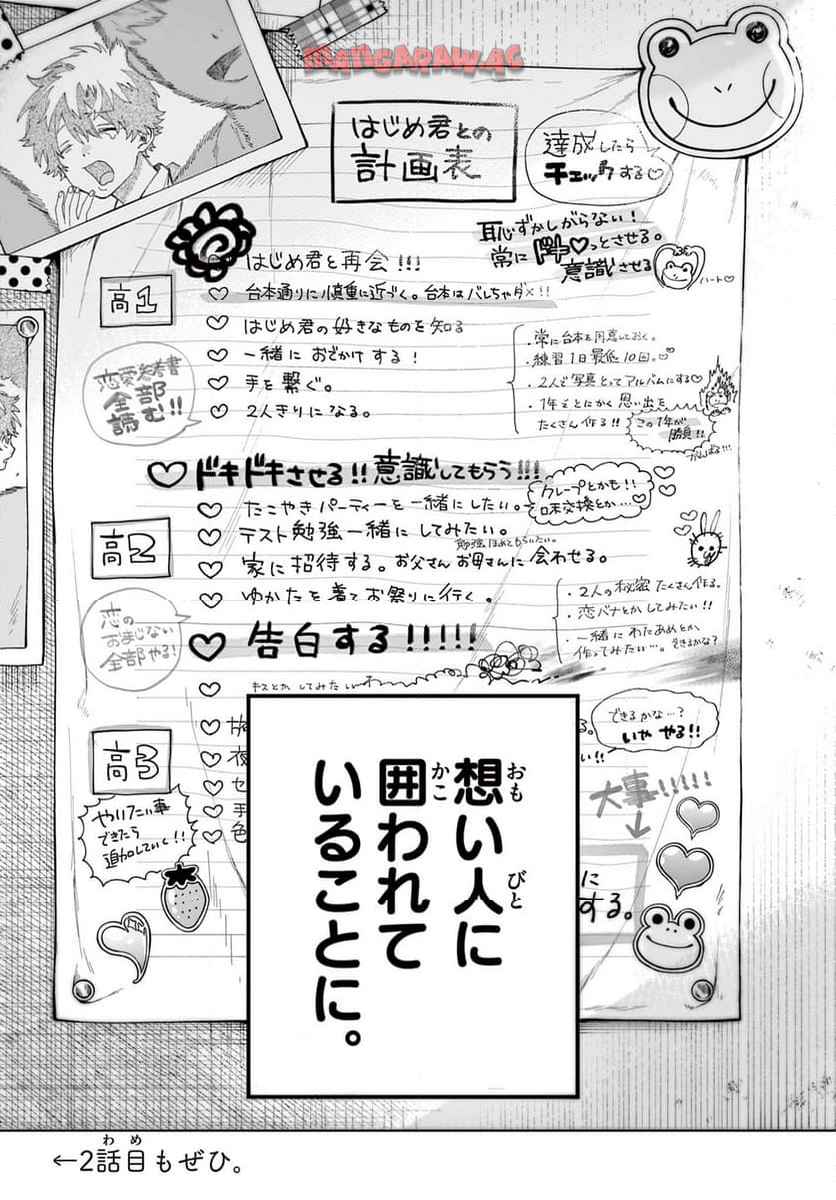 MANGARAW.AC
はじめ君との
計画表
達成したら
チェックする♡
恥ずかしがらない!
常にドキ♡っとさせる。
意識させる
ハート♡
はじめ君と再会!!!
高1
♡ 台本通りに慎重に近づく。台本はバレちゃダメ!!
♡ はじめ君の好きなものを知る
♡ 一緒におでかけする!
♡ 手を繋ぐ。
♡ 2人きりになる。
・常に台本を用意しておく。
・練習1日最低10回。♡
・2人で写真とってアルバムにする♡
・1年でとにかく思い出を
たくさん作る!!
この1年が
勝負!!
がんばる!!!
恋愛参考書
全部
読む!!
♡ ドキドキさせる!!意識してもらう!!!
♡ たこやきパーティーを一緒にしたい。
クレープとかも!!
味交換とか…♡
高2
♡ テスト勉強一緒にしてみたい。
勉強ほめてもらいたい。
♡ 家に招待する。お父さんお母さんに会わせる。
♡ ゆかたを着てお祭りに行く。
・2人の秘密たくさん作る。
・恋バナとかしてみたい!!
・一緒にわたあめとか
作ってみたい…。できるかな?
恋の
おまじない
全部やる!
♡ 告白する!!!!!
♡ キスとかしてみたいわ
できるかな…?
いや やる!!
い!!
高3
夜
セ
手
色
やりたい事
できたら
追加していく!!
大事!!!!!
に
する。
想い人に
囲われて
いることに。
おも
びと
かこ
←2話目もぜひ。
わめ